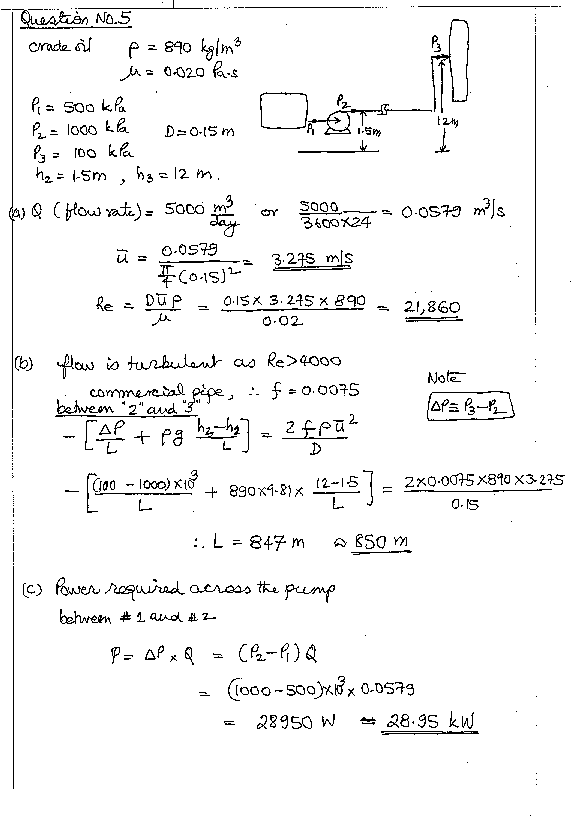 Question No.5
crude oil ρ = 890 kg/m³
μ = 0.020 Pa.s
P₁ = 500 kPa
P₂ = 1000 kPa D = 0.15 m
P₃ = 100 kPa
h₂ = 1.5m , h₃ = 12 m.
P₁
P₂
1.5m
P₃
12m
(a) Q (flow rate) = 5000 m³/day or 5000/3600×24 = 0.0579 m³/s
ū = 0.0579/π/4 (0.15)² = 3.275 m/s
Re = Dūρ/μ = 0.15 × 3.275 × 890/0.02 = 21,860
(b) flow is turbulent as Re>4000
commercial pipe, ∴ f = 0.0075
Note
between "2" and "3"
ΔP = P₃-P₂
- [ΔP/L + ρg h₃-h₂/L] = 2fρū²/D
- [(100 - 1000)×10³/L + 890×9.81× 12-1.5/L] = 2×0.0075×890×3.275/0.15
∴ L = 847 m ≈ 850 m
(c) Power required across the pump
between #1 and #2
P = ΔP × Q = (P₂-P₁) Q
= (1000-500)×10³ × 0.0579
= 28950 W = 28.95 kW